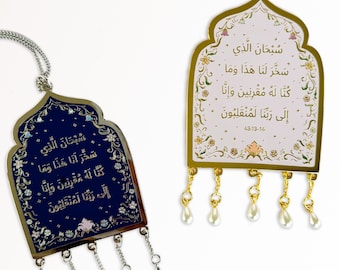 سُبْحَانَ الَّذِي
سَخَّرَ لَنَا هَذَا وَمَا
كُنَّا لَهُ مُقْرِنِينَ وَإِنَّا
إِلَى رَبِّنَا لَمُنْقَلِبُونَ
43:13-14
سُبْحَانَ الَّذِي
سَخَّرَ لَنَا هَذَا وَمَا
كُنَّا لَهُ مُقْرِنِينَ وَإِنَّا
إِلَى رَبِّنَا لَمُنْقَلِبُونَ